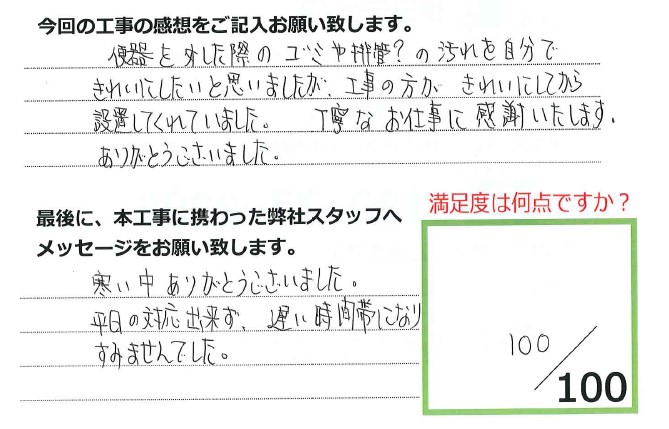 今回の工事の感想をご記入お願い致します。
便器を外した際のゴミや排管?の汚れを自分で
きれいにしたいと思いましたが、工事の方が きれいにしてから
設置してくれていました。 丁寧なお仕事に感謝いたします。
ありがとうございました。
最後に、本工事に携わった弊社スタッフへ
メッセージをお願い致します。
寒い中ありがとうございました。
平日の対応出来ず、遅い時間帯になり
すみませんでした。
満足度は何点ですか?
100/100